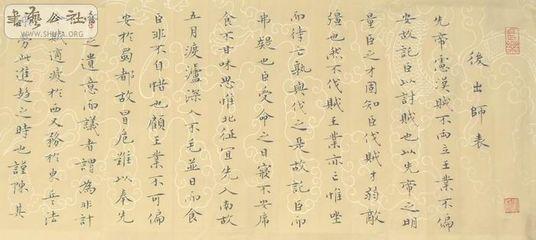 後出師表
先帝慮漢賊不兩立王業不偏
安故託臣以討賊也以先帝之明
量臣之才固知臣伐賊才弱敵
彊也然不伐賊王業亦亡惟坐
而待亡孰與伐之是故託臣而
弗疑也臣受命之日寢不安席
食不甘味思惟北征宜先入南故
五月渡瀘深入不毛並日而食
臣非不自惜也顧王業不可偏
安於蜀都故冒危難以奉先
之遺意而議者謂為非計
賊適疲於西又務於東兵法
勞此進趨之時也謹陳其
書藝公社
www.shufa.org